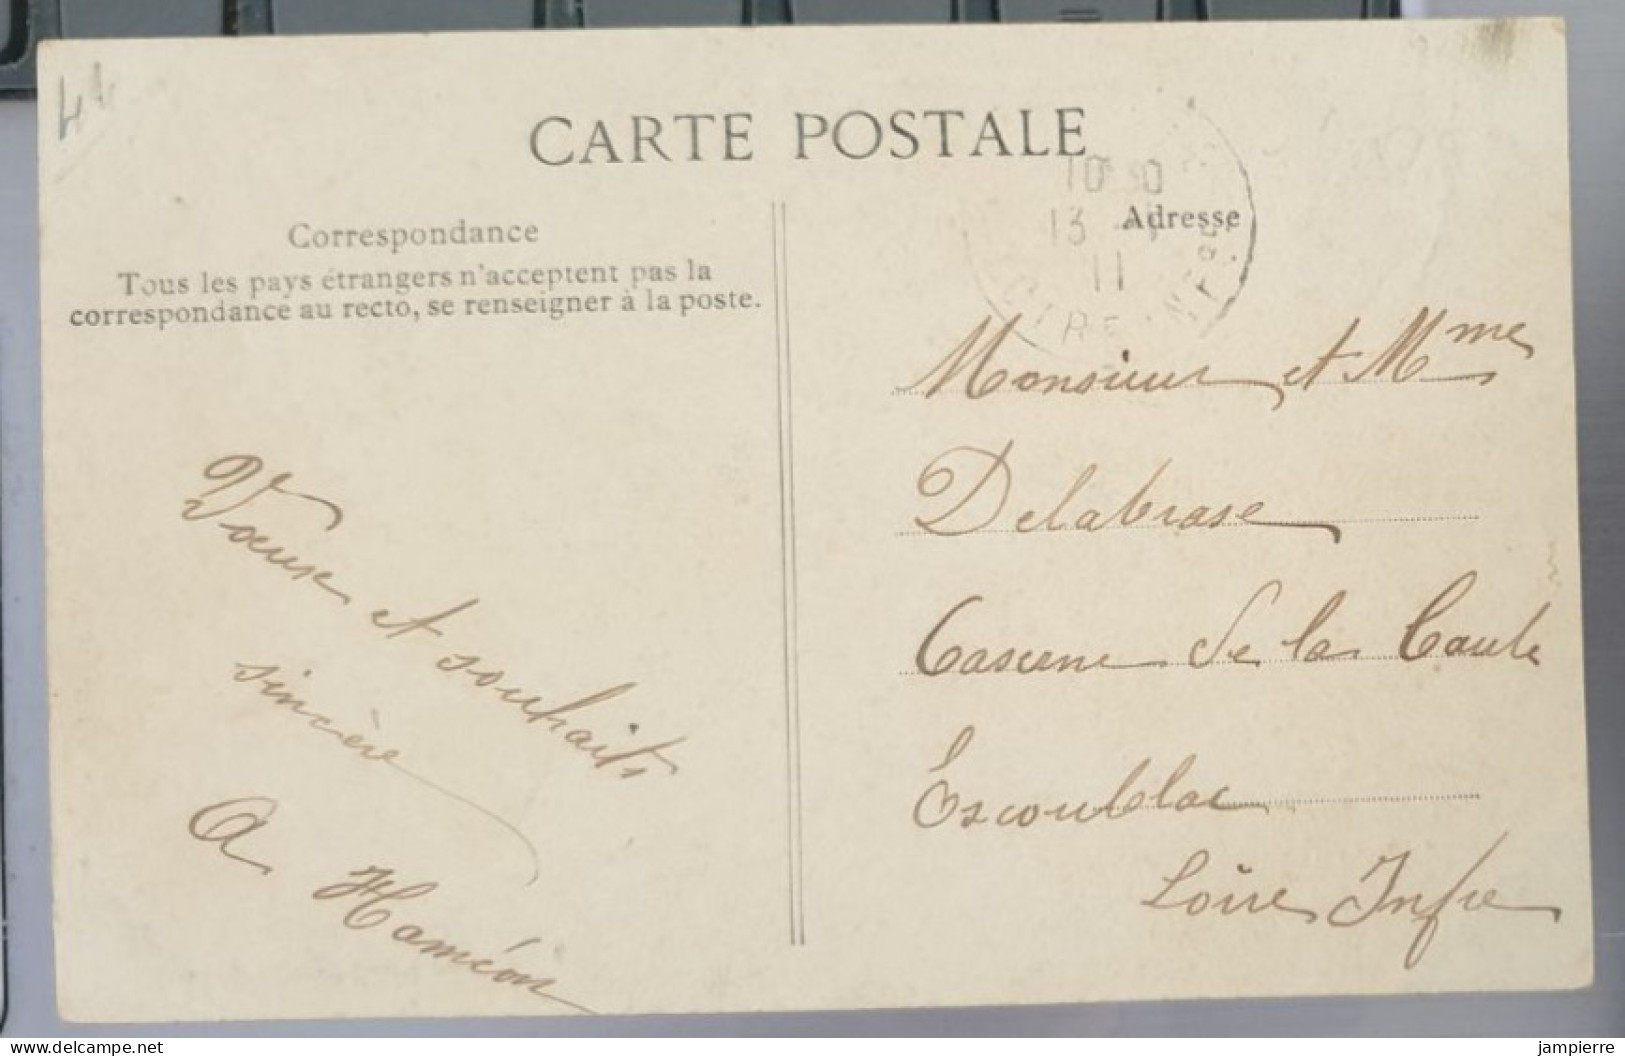 44
CARTE POSTALE
Correspondance
Tous les pays étrangers n'acceptent pas la
correspondance au recto, se renseigner à la poste.
Vœux et souhaits
sincère
A Haméon
10 30
13
11
Adresse
Monsieur et Mme
Delabrase
Caserne de la Caule
Escoublac
Loire Infre
www.delcampe.net
jampierre